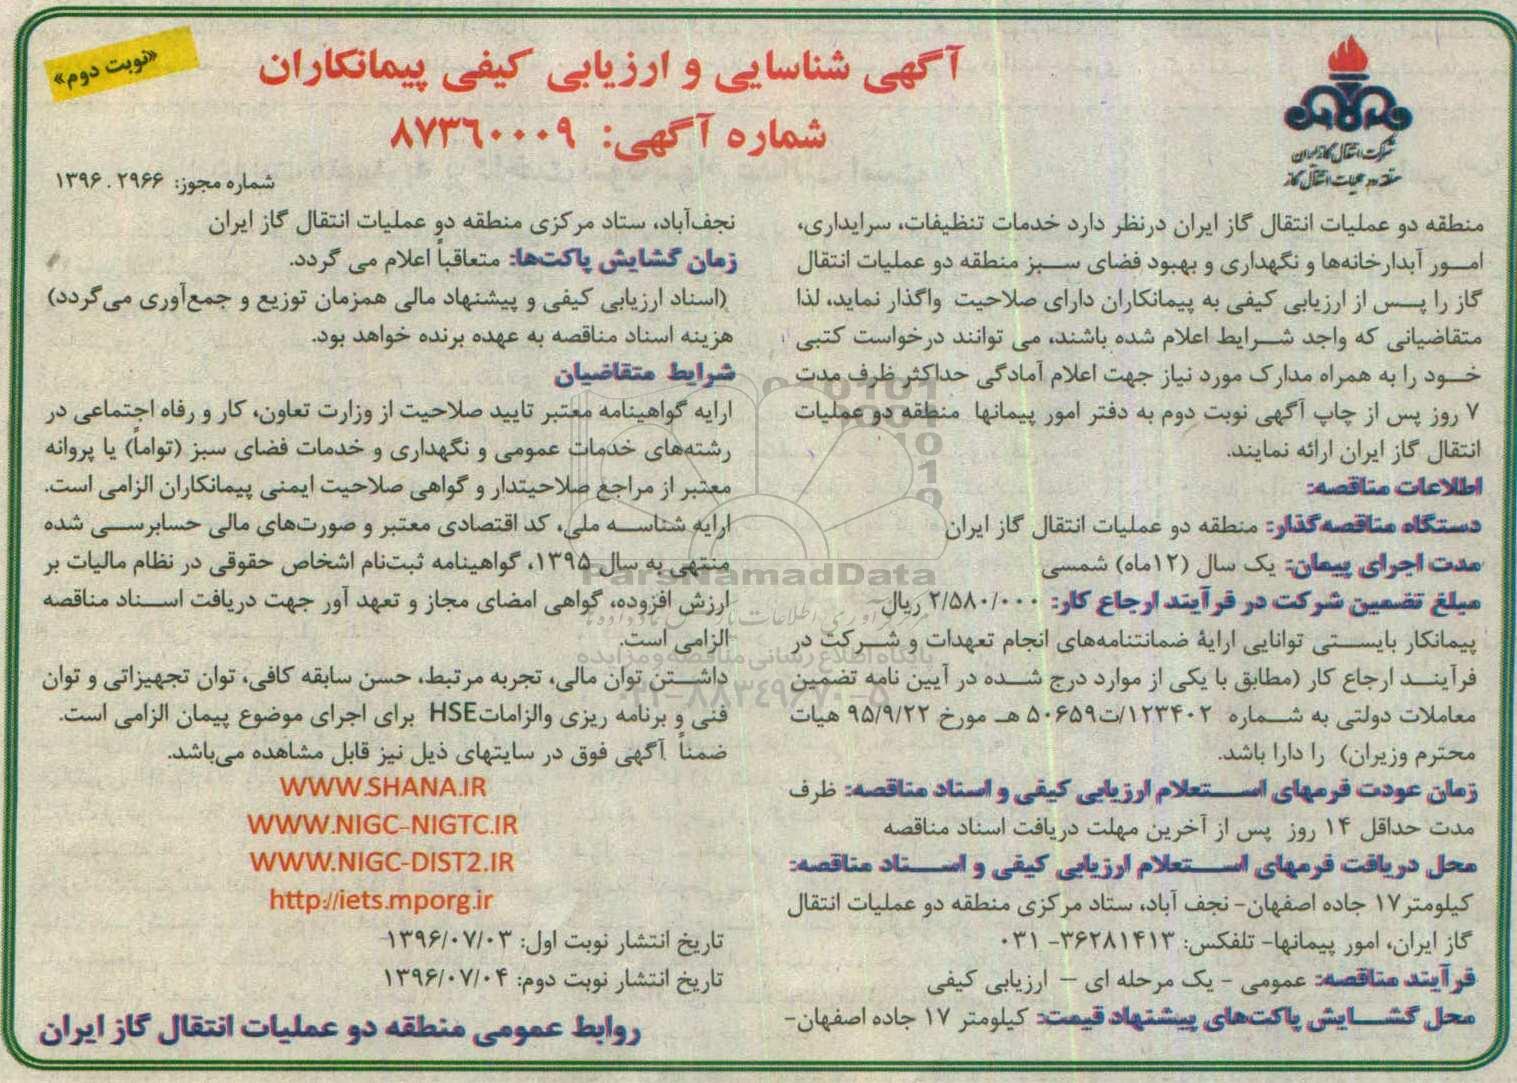 «نوبت دوم»
آگهی شناسایی و ارزیابی کیفی پیمانکاران
شماره آگهی: ۸۷۳۶۰۰۰۹
شرکت انتقال گاز ایران
منطقه دو عملیات انتقال گاز
شماره مجوز: ۱۳۹۶.۲۹۶۶
منطقه دو عملیات انتقال گاز ایران درنظر دارد خدمات تنظیفات، سرایداری،
امور آبدارخانه‌ها و نگهداری و بهبود فضای سبز منطقه دو عملیات انتقال
گاز را پس از ارزیابی کیفی به پیمانکاران دارای صلاحیت واگذار نماید، لذا
متقاضیانی که واجد شرایط اعلام شده باشند، می توانند درخواست کتبی
خود را به همراه مدارک مورد نیاز جهت اعلام آمادگی حداکثر ظرف مدت
۷ روز پس از چاپ آگهی نوبت دوم به دفتر امور پیمانها منطقه دو عملیات
انتقال گاز ایران ارائه نمایند.
اطلاعات مناقصه:
دستگاه مناقصه‌گذار: منطقه دو عملیات انتقال گاز ایران
مدت اجرای پیمان: یک سال (۱۲ماه) شمسی
مبلغ تضمین شرکت در فرآیند ارجاع کار: ۲/۵۸۰/۰۰۰ ریال
پیمانکار بایستی توانایی ارایۀ ضمانتنامه‌های انجام تعهدات و شرکت در
فرآیند ارجاع کار (مطابق با یکی از موارد درج شده در آیین نامه تضمین
معاملات دولتی به شماره ۱۲۳۴۰۲/ت۵۰۶۵۹ هـ مورخ ۹۵/۹/۲۲ هیات
محترم وزیران) را دارا باشد.
زمان عودت فرمهای استعلام ارزیابی کیفی و اسناد مناقصه: ظرف
مدت حداقل ۱۴ روز پس از آخرین مهلت دریافت اسناد مناقصه
محل دریافت فرمهای استعلام ارزیابی کیفی و اسناد مناقصه:
کیلومتر۱۷ جاده اصفهان- نجف آباد، ستاد مرکزی منطقه دو عملیات انتقال
گاز ایران، امور پیمانها- تلفکس: ۳۶۲۸۱۴۱۳- ۰۳۱
فرآیند مناقصه: عمومی - یک مرحله ای – ارزیابی کیفی
محل گشایش پاکت‌های پیشنهاد قیمت: کیلومتر ۱۷ جاده اصفهان-
نجف‌آباد، ستاد مرکزی منطقه دو عملیات انتقال گاز ایران
زمان گشایش پاکت‌ها: متعاقباً اعلام می گردد.
(اسناد ارزیابی کیفی و پیشنهاد مالی همزمان توزیع و جمع‌آوری می‌گردد)
هزینه اسناد مناقصه به عهده برنده خواهد بود.
شرایط متقاضیان
ارایه گواهینامه معتبر تایید صلاحیت از وزارت تعاون، کار و رفاه اجتماعی در
رشته‌های خدمات عمومی و نگهداری و خدمات فضای سبز (تواماً) یا پروانه
معتبر از مراجع صلاحیتدار و گواهی صلاحیت ایمنی پیمانکاران الزامی است.
ارایه شناسه ملی، کد اقتصادی معتبر و صورت‌های مالی حسابرسی شده
منتهی به سال ۱۳۹۵، گواهینامه ثبت‌نام اشخاص حقوقی در نظام مالیات بر
ارزش افزوده، گواهی امضای مجاز و تعهد آور جهت دریافت اسناد مناقصه
الزامی است.
داشتن توان مالی، تجربه مرتبط، حسن سابقه کافی، توان تجهیزاتی و توان
فنی و برنامه ریزی والزاماتHSE برای اجرای موضوع پیمان الزامی است.
ضمناً آگهی فوق در سایتهای ذیل نیز قابل مشاهده می‌باشد.
WWW.SHANA.IR
WWW.NIGC-NIGTC.IR
WWW.NIGC-DIST2.IR
http://iets.mporg.ir
تاریخ انتشار نوبت اول: ۱۳۹۶/۰۷/۰۳
تاریخ انتشار نوبت دوم: ۱۳۹۶/۰۷/۰۴
روابط عمومی منطقه دو عملیات انتقال گاز ایران
ParsNamadData
پایگاه اطلاع رسانی مناقصه و مزایده